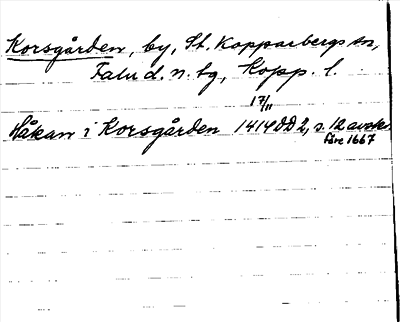 Korsgården, by, St. Kopparbergs sn,
Falu d. n. tg, Kopp. l.
17/11
Håkan i Korsgården 1414 DD 2, s. 12 avskr.
före 1667